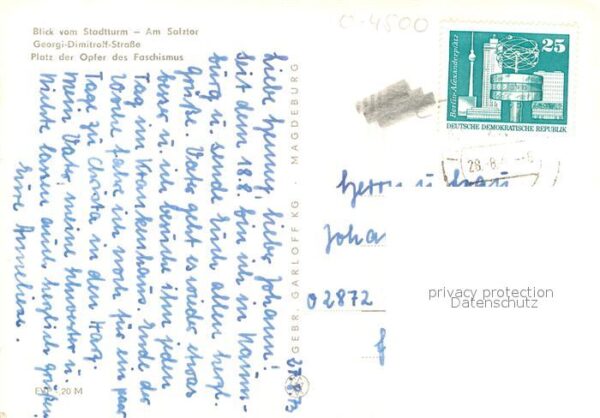 Blick vom Stadtturm — Am Salztor
Georgi-Dimitroff-Straße
Platz der Opfer des Faschismus
0-4500
25
Berlin-Alexanderplatz
DEUTSCHE DEMOKRATISCHE REPUBLIK
28.-8.
27.8.73
Liebe Jenny, lieber Johann!
Seit dem 18.8. bin ich in Naum-
burg u. sende Euch allen herzl.
Grüße. Vater geht es wieder etwas
besser u. ich besuche ihn jeden
Tag im Krankenhaus. Ende der
Woche fahre ich noch für ein paar
Tage zu Christa in den Harz.
Mein Vater, meine Schwester u.
Nichte lassen auch herzlich grüßen
Eure Anneliese.
GEBR. GARLOFF KG · MAGDEBURG
EVP ,20 M
Herrn u. Frau
Joha
02872
privacy protection
Datenschutz